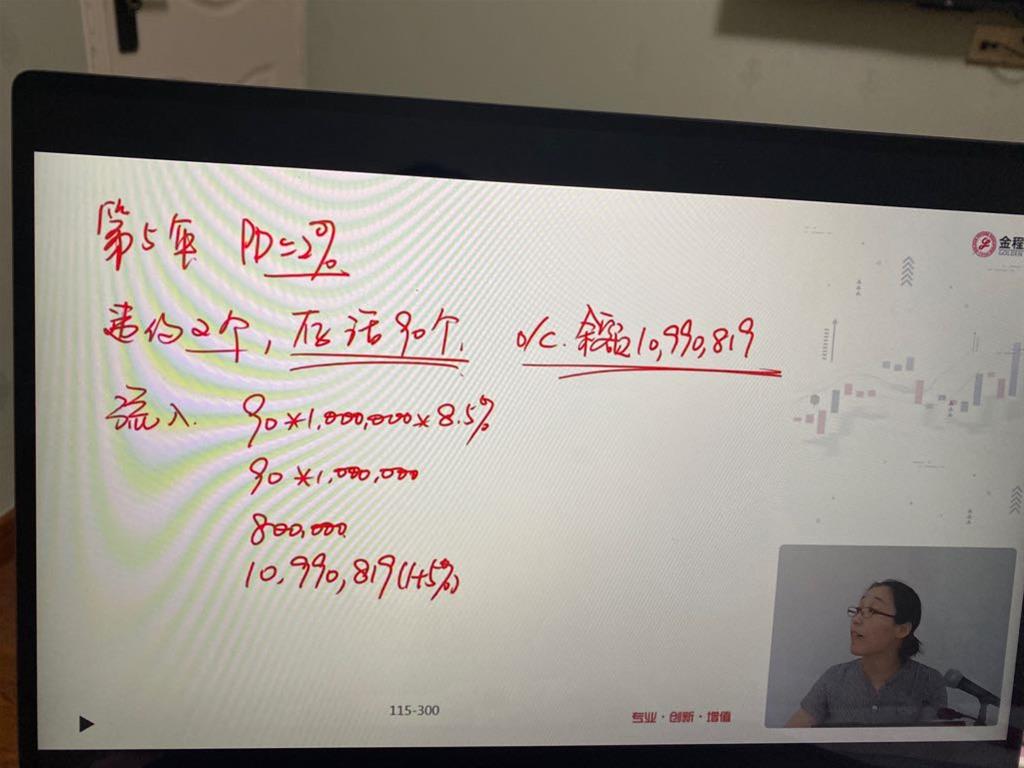 金程
GOLDEN
第5年 PD=2%
违约2个, 存活90个. O/C. 余额10,990,819
流入. 90*1,000,000*8.5%
90*1,000,000
800,000
10,990,819(1+5%)
115-300
专业·创新·增值